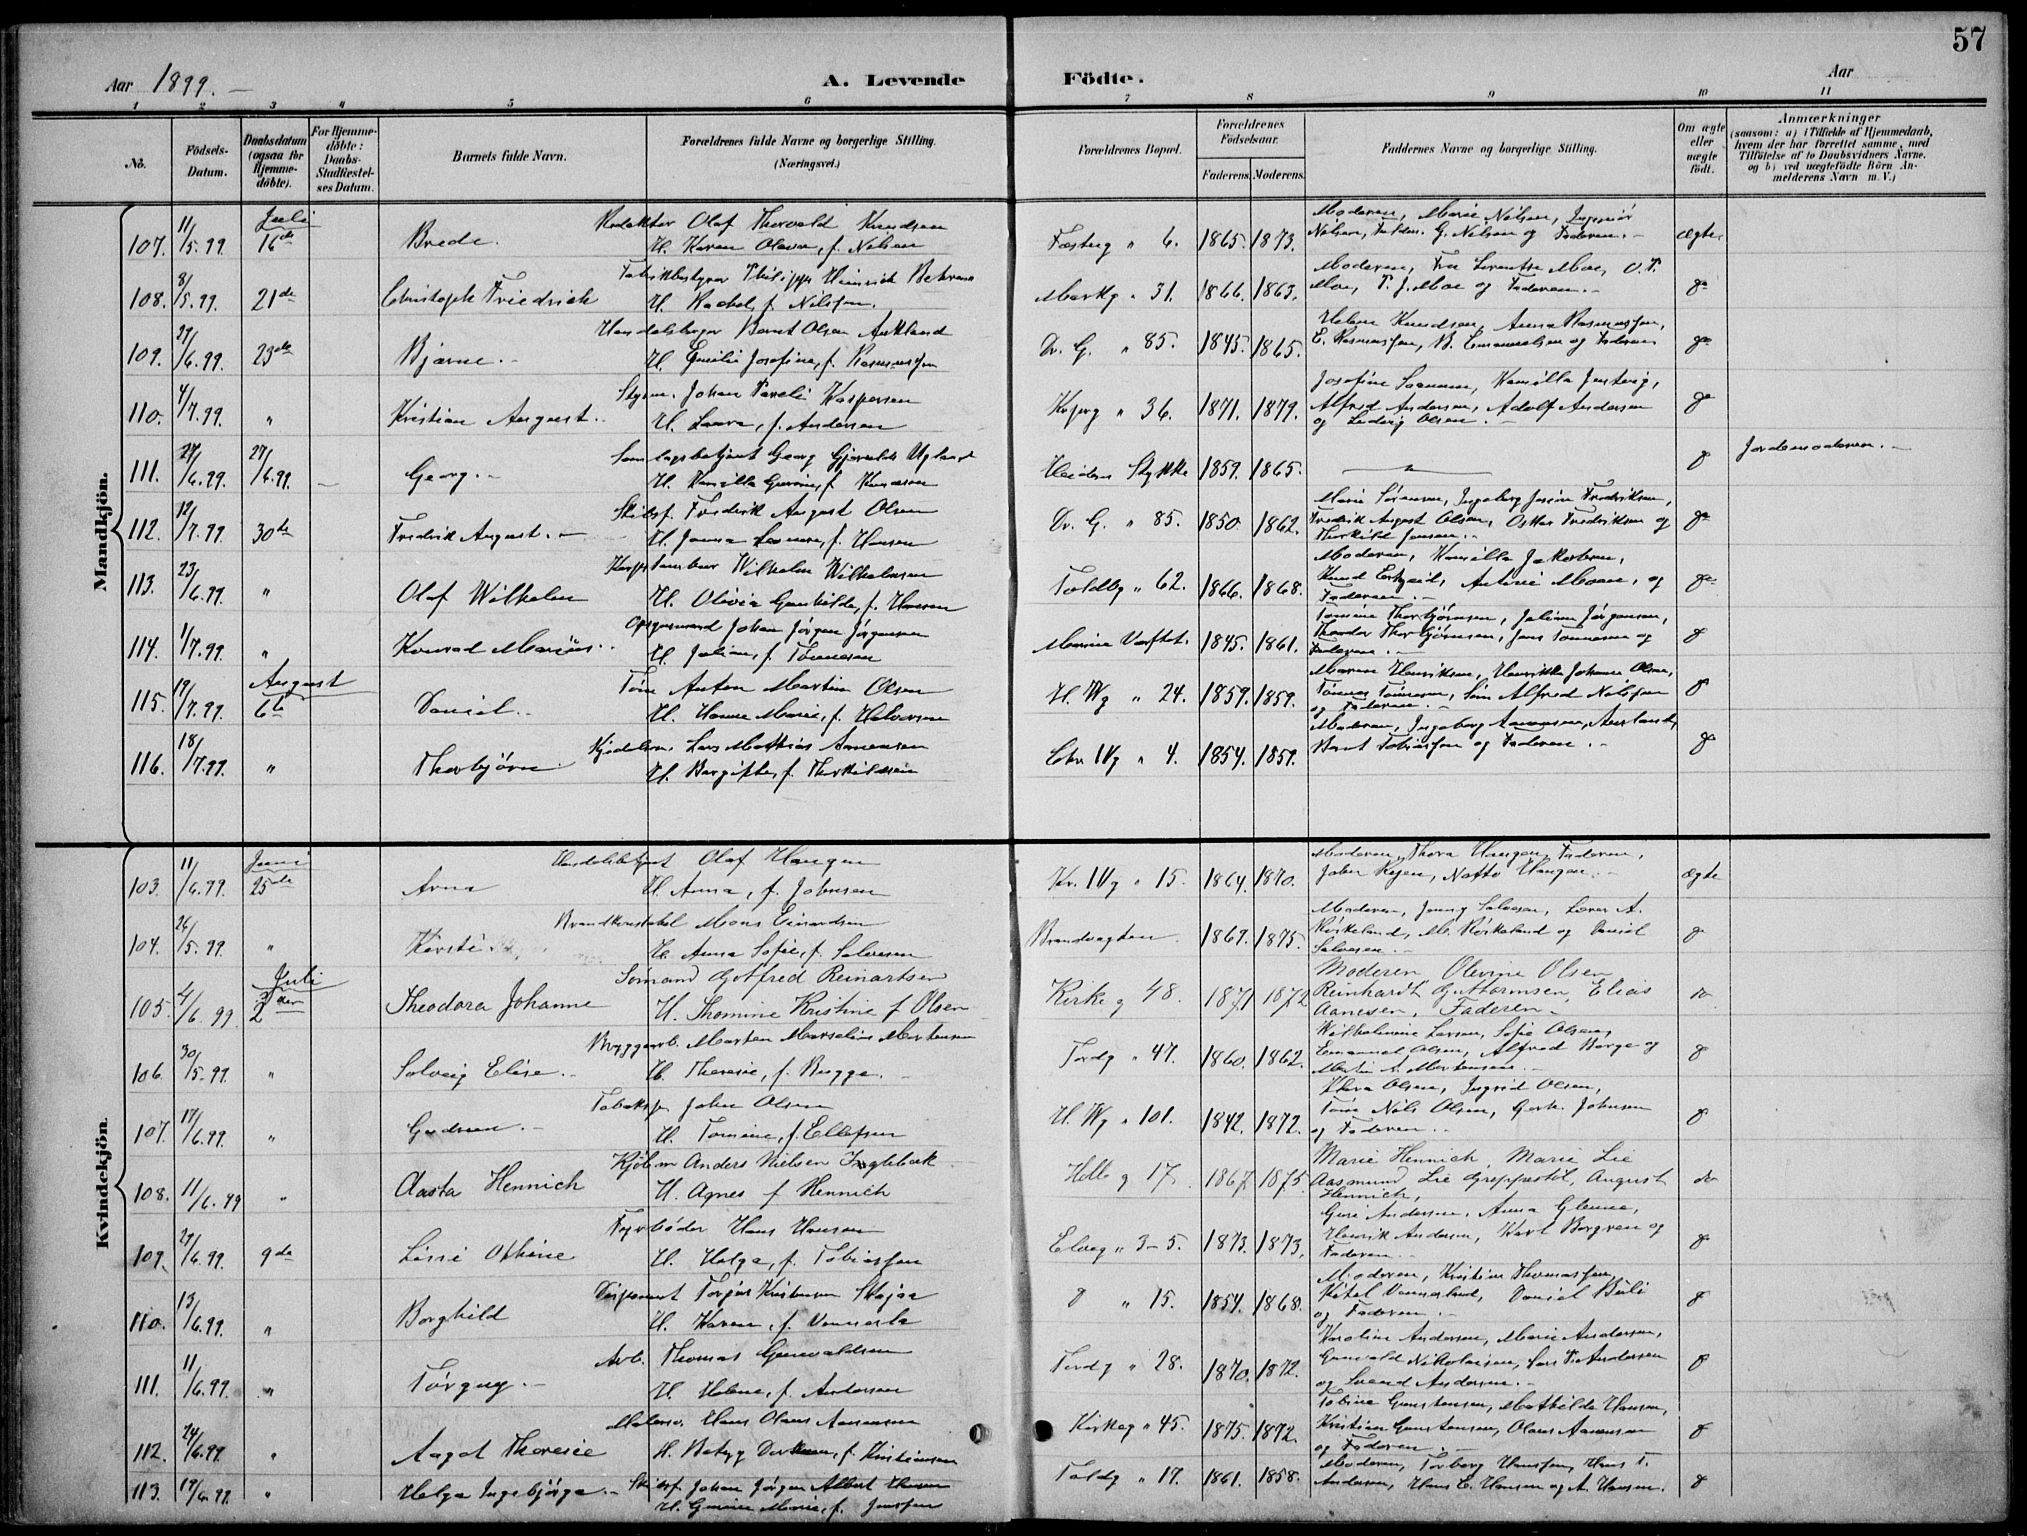 57
Aar 1899. A. Levende Födte. Aar
1 2 3 4 5 6 7 8 9 10 11
No.
Födsels-Datum.
Daabsdatum (ogsaa for Hjemme-döbte).
For Hjemme-döbte: Daabs-Stadfæstel-ses Datum.
Barnets fulde Navn.
Forældrenes fulde Navne og borgerlige Stilling. (Næringsvei.)
Forældrenes Bopæl.
Forældrenes Födselsaar.
Faderens. Moderens.
Faddernes Navne og borgerlige Stilling.
Om ægte eller uægte födt.
Anmærkninger
(saasom: a) i Tilfælde af Hjemmedaab, hvem der har forrettet samme, med Tilföielse af to Daabsvidners Navne. og b) ved uægtefödte Börn An-melderens Navn m. V.)
Mandkjön.
Juli
107. 11/5.99. 16de Brede. Redaktør Olaf Thorvald Knudsen
H. Karen Olava, f. Nielsen
Fæstng " 6. 1865. 1873.
Moderen, Marie Nielsen, Ingeniør
Nielsen, G. Nielsen og Faderen. ægte
108. 8/5.99. 21de Christoph Friedrich Fabrikbestyrer Philipp Heinrich Behrens
H. Rachel, f. Nilssen.
Markg " 31. 1866. 1863.
Moderen, Fru Moe, O. T.
Moe, T. J. Moe og Faderen. do
109. 27/6.99. 23de Bjarne. Handelsborger Bernt Olsen Aukland
H. Emilie Josefine, f. Rasmussen
Dr. G. " 85. 1845. 1865.
Helene Knudsen, Anna Rasmussen,
E. Rasmussen, B. Emanuelsen og Faderen do
110. 4/7.99. " Kristian August. Styrm. Johan Pareli Kaspersen
H. Laura, f. Andersen
Kojerg " 36. 1871. 1879.
Josefine Kamilla
Alfred Andersen, Adolf Andersen
og Ludvig Olsen. do
111. 27/6.99. 27/6.99. Georg. Samlagsbetjent Georg Ugland
H. Kamilla f. Knudsen
Heidens Stykke 1859. 1865. do Jordemoderen.
112. 12/7.99. 30te Fredrik August. Skibsf. Fredrik August Olsen
H. Janna f. Hansen
Dr. G. " 85. 1850. 1862.
Marie Sørensen, Ingeborg Fredriksen,
Fredrik August Olsen, Oskar Fredriksen og
Thorkild Jensen. do
113. 23/6.99. " Olaf Wilhelm Wilhelm Wilhelmsen
H. Olivia Gunhilde, f. Hansen
Toldbg " 62. 1866. 1868.
Moderen, Kamilla Jakobsen,
Knud og
Faderen. do
114. 1/7.99. " Konrad Marius. Opsynsmand Johan Jørgen Jørgensen
H. Juline, f. Tønnesen
Marine Værftet. 1845. 1861.
Tomine Thorbjørnsen, Juline Jørgensen,
Theodor Thorbjørnsen, Jens Tønnesen og
Faderen. do
August
115. 19/7.99. 6te Daniel. Tøm. Anton Martin Olsen
H. Hanne Marie, f. Halvorsen
H. Wg " 24. 1859. 1859.
Maren Henriksen, Henrikka Johanne Olsen,
Tønnes Tønnesen, Alfred Nilssen
og Faderen. do
116. 18/7.99. " Thorbjørn. Kjedelsm. Lars Mathias Aanensen
H. Bergitte, f. Thorkildsen
Chr. IVg " 4. 1854. 1859.
Moderen, Ingeborg Aanensen,
Bernt Tobiassen og Faderen. do
Kvindekjön.
Juni
103. 11/6.99. 25de Arna Handelsbetjent Olaf Haugen
H. Anna, f. Johnsen
Kr. IVg " 15. 1864. 1870.
Moderen, Thora Haugen, Faderen,
John Natto Haugen. ægte
104. 26/5.99. " Kirsti Brandkonstabel Mons Einardsen
H. Anna Sofie, f. Salvesen
Brandvagten. 1869. 1875.
Moderen, Jenny Salvesen, A.
Kirkeland, M. Kirkeland og Daniel
Salvesen. do
Juli
105. 4/6 99. 2den Theodora Johanne Sømand Gotfred Reinartsen
H. Thomine Kristine f Olsen
Kirke g 48. 1871 1872
Moderen, Olevine Olsen
Reinhardt Guttormsen, Elias
Aanesen, Faderen. do
106. 30/5.99. " Solveig Elise. Bryggearb. Morten Marselius Mortensen
H. Therese, f. Bugge.
Tordg " 47. 1860. 1862.
Wilhelmine Larsen, Sofie Olsen,
Emanuel Olsen, Alfred Børge og
Martin A. Mortensen. do
107. 17/6.99. " Gudrun. Tobaksf. John Olsen
H. Tomine, f. Ellefsen
H. Wg " 101. 1842. 1872.
Klara Olsen, Ingrid Olsen,
Tøm. Nils Olsen, Johnsen
og Faderen. do
108. 11/6.99 " Aasta Hennich Kjøbm Anders Nielsen
H. Agnes f Hennich
Holb g 17. 1867. 1875
Marie Hennich, Marie Lie
Aasmund Lie Greppestøl, August
Hennich, do
109. 27/6.99. 9de Lissi Othine Fyrbøder Hans Hansen
H. Helga, f. Tobiassen
Elveg " 3-5. 1873. 1873.
Guri Andersen, Anna Glenne,
Henrik Andersen, Karl Borgren og
Faderen. do
110. 13/6.99. " Borghild Disponent Torgius Kristensen
H. Karen, f. Vennesla
do " 15. 1854. 1868.
Moderen, Kristine Thomassen,
Ketel Daniel
og Faderen. do
111. 11/6.99. " Torgny. Arb. Thomas Gunvaldsen
H. Helene, f. Andersen
Tordg " 28. 1870. 1872.
Karoline Andersen, Marie Andersen,
Gunvald Nikolaisen, Lars Andersen
og Svend Andersen. do
112. 24/6.99. " Aagot Therese Malersv. Hans Olaus Aanensen
H. Betzy f. Kristiansen
Kirkeg " 45. 1875. 1872.
Tobine Gunstensen, Mathilde Hansen,
Kristian Gunstensen, Olaus Aanensen
og Faderen. do
113. 17/6.99. " Helga Ingebjørga. Skibsf. Johan Jørgen Albert Hansen
H. Marie, f. Jensen
Toldg " 17. 1861. 1858.
Moderen, Torborg Hansen, Hans T.
Andersen, Hans E. Hansen og A. Hansen. do